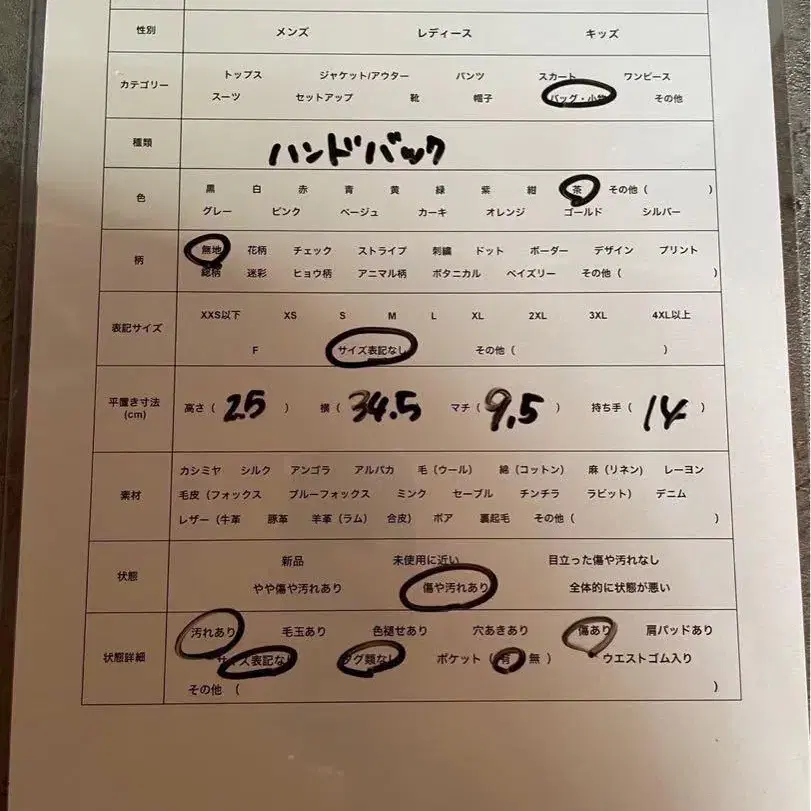 性別 メンズ レディース キッズ
カテゴリー
トップス ジャケット/アウター パンツ スカート ワンピース
スーツ セットアップ 靴 帽子 バッグ・小物 その他
種類 ハンドバック
色
黒 白 赤 青 黄 緑 紫 紺 茶 その他 ( )
グレー ピンク ベージュ カーキ オレンジ ゴールド シルバー
柄
無地 花柄 チェック ストライプ 刺繍 ドット ボーダー デザイン プリント
総柄 迷彩 ヒョウ柄 アニマル柄 ボタニカル ペイズリー その他 ( )
表記サイズ
XXS以下 XS S M L XL 2XL 3XL 4XL以上
F サイズ表記なし その他 ( )
平置き寸法
(cm)
高さ ( 25 ) 横 ( 34.5 マチ ( 9.5 ) 持ち手 ( 14 )
素材
カシミヤ シルク アンゴラ アルパカ 毛 (ウール) 綿 (コットン) 麻 (リネン) レーヨン
毛皮 (フォックス ブルーフォックス ミンク セーブル チンチラ ラビット) デニム
レザー (牛革 豚革 羊革 (ラム) 合皮) ボア 裏起毛 その他 ( )
状態
新品 未使用に近い 目立った傷や汚れなし
やや傷や汚れあり 傷や汚れあり 全体的に状態が悪い
状態詳細
汚れあり 毛玉あり 色褪せあり 穴あきあり 傷あり 肩パッドあり
サイズ表記なし タグ類なし ポケット ( 有 無 ) ウエストゴム入り
その他 ( )